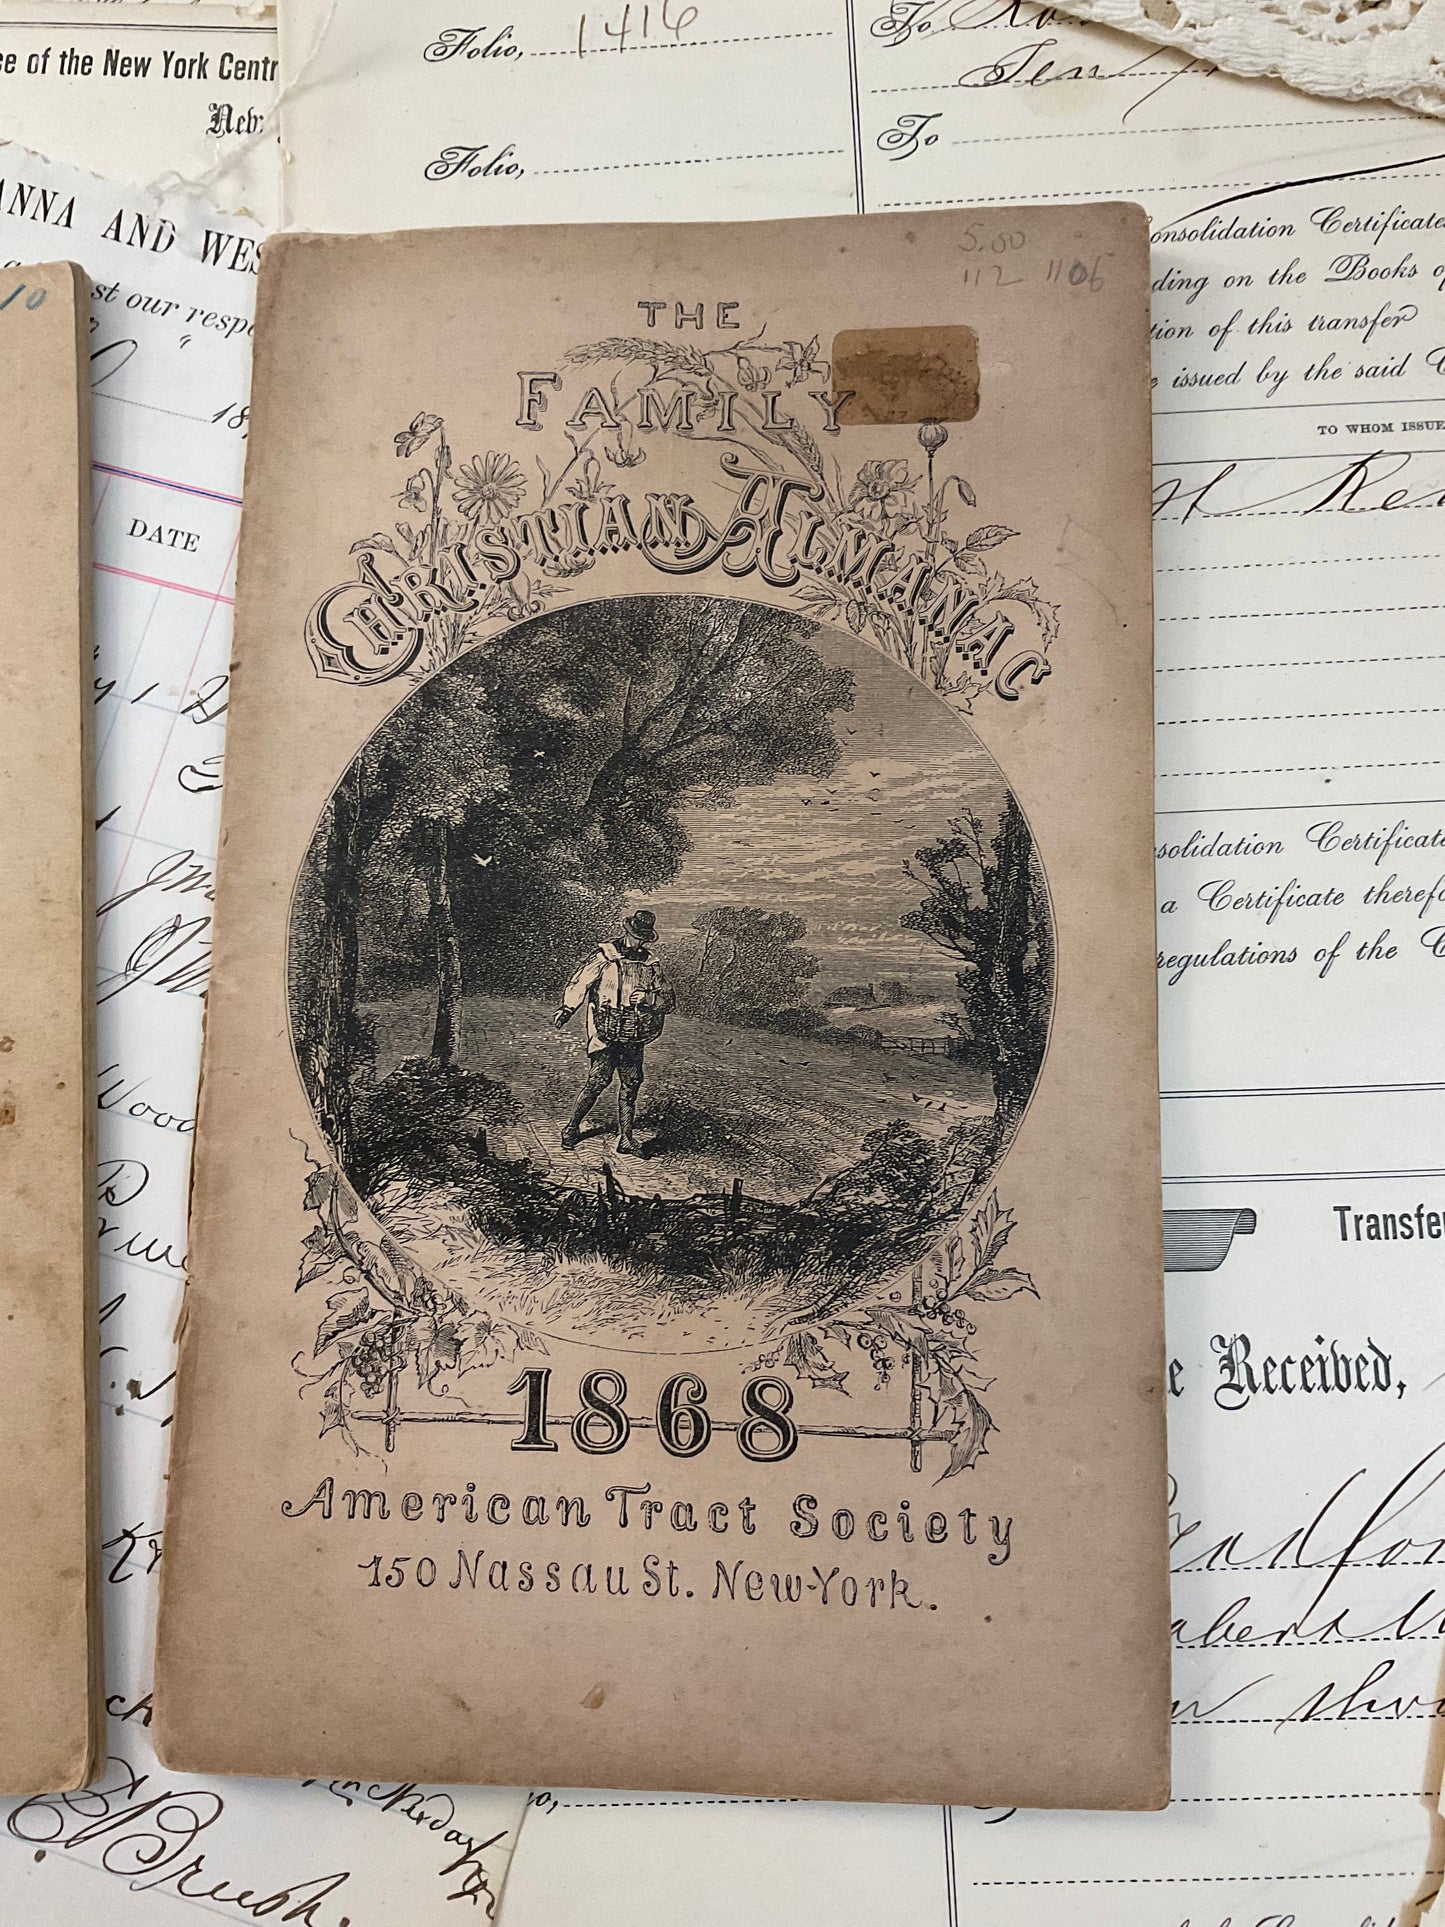 ce of the New York Centr
New
Folio, 1416
Folio,
To
Ten
To
ANNA AND WES
st our respe
18
10
DATE
5.00
112 1106
THE
FAMILY
CHRISTIAN ALMANAC
1868
American Tract Society
150 Nassau St. New-York.
onsolidation Certificates
ding on the Books of
tion of this transfer
issued by the said C
TO WHOM ISSUE
solidation Certificate
a Certificate therefo
regulations of the C
Transfe
e Received,
Wood
Brush.